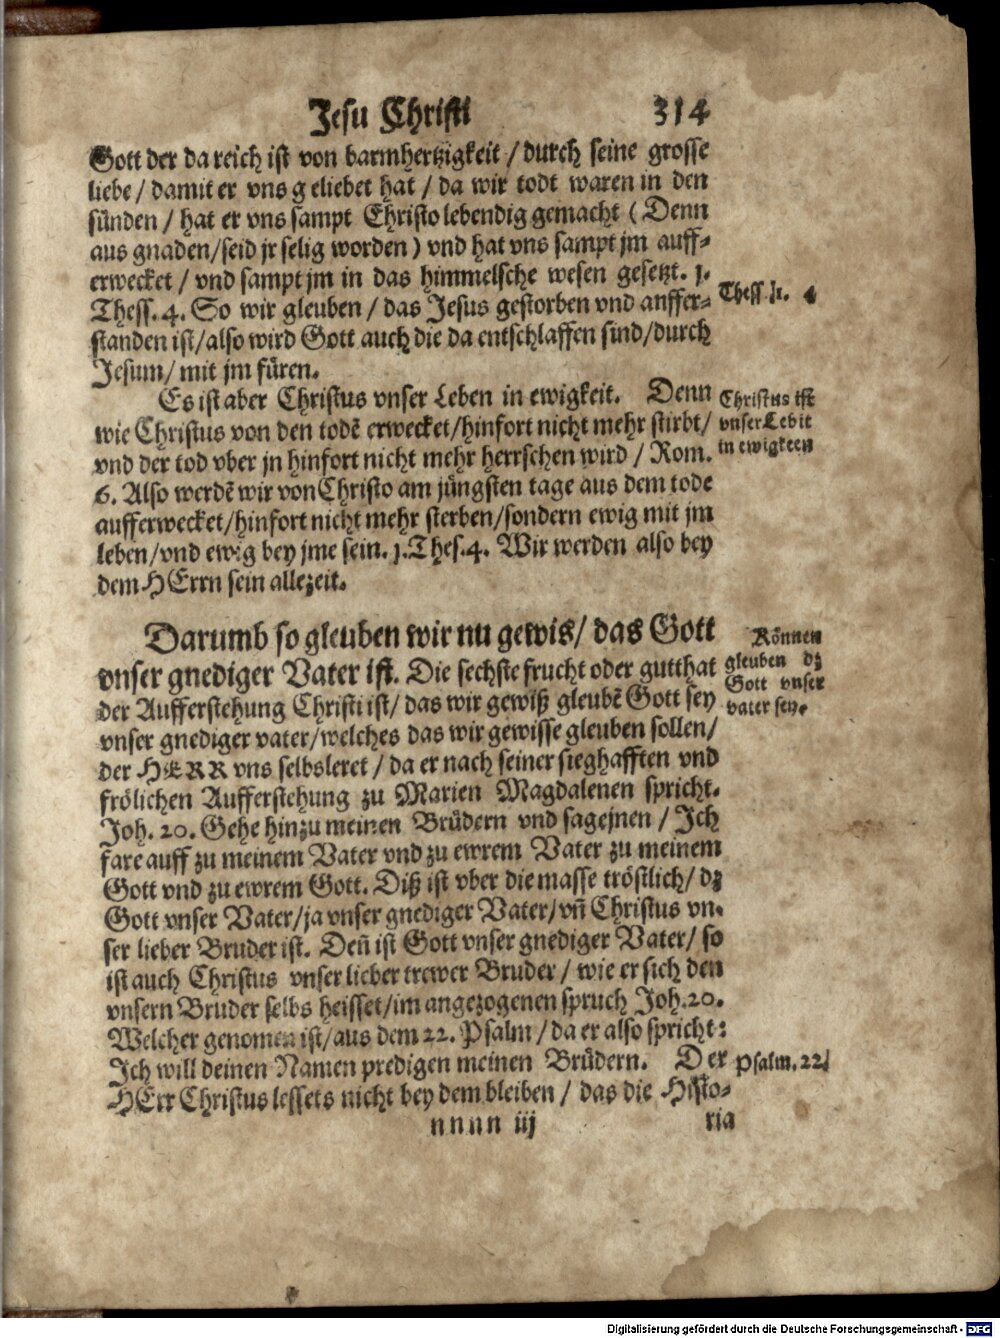 Jesu Christi 314
Gott der da reich ist von barmhertzigkeit / durch seine grosse
liebe / damit er vns geliebet hat / da wir todt waren in den
sünden / hat er vns sampt Christo lebendig gemacht ( Denn
aus gnaden/seid jr selig worden ) vnd hat vns sampt jm auff-
erwecket / vnd sampt jm in das himmelsche wesen gesetzt. j.
Thess. 4. So wir gleuben / das Jesus gestorben vnd anffer-
standen ist/also wird Gott auch die da entschlaffen sind/durch
Jesum/ mit jm füren.
Thess j. 4
Es ist aber Christus vnser Leben in ewigkeit. Denn
wie Christus von den todē erwecket/hinfort nicht mehr stirbt/
vnd der tod vber jn hinfort nicht mehr herrschen wird / Rom.
6. Also werdē wir von Christo am jüngsten tage aus dem tode
aufferwecket/hinfort nicht mehr sterben/sondern ewig mit jm
leben/vnd ewig bey jme sein. j.Thes.4. Wir werden also bey
dem HErrn sein allezeit.
Christus ist
vnser Lebē
in ewigkeen
Darumb so gleuben wir nu gewis/ das Gott
vnser gnediger Vater ist. Die sechste frucht oder gutthat
der Aufferstehung Christi ist/ das wir gewiß gleubē Gott sey
vnser gnediger vater/welches das wir gewisse gleuben sollen/
der HERR vns selbsleret / da er nach seiner sieghafften vnd
frölichen Aufferstehung zu Marien Magdalenen spricht.
Joh. 20. Gehe hin zu meinen Brüdern vnd sage jnen / Jch
fare auff zu meinem Vater vnd zu ewrem Vater zu meinem
Gott vnd zu ewrem Gott. Diß ist vber die masse tröstlich/ dz
Gott vnser Vater/ja vnser gnediger Vater/vn̄ Christus vn-
ser lieber Bruder ist. Den̄ ist Gott vnser gnediger Vater/ so
ist auch Christus vnser lieber trewer Bruder / wie er sich den
vnsern Bruder selbs heisset/im angezogenen spruch Joh.20.
Welcher genomen ist/aus dem 22. Psalm / da er also spricht:
Jch will deinen Namen predigen meinen Brüdern. Der
HErr Christus lessets nicht bey dem bleiben / das die Histo-
Können
gleuben dz
Gott vnser
vater sey.
Psalm. 22
nnnn iij ria
Digitalisierung gefördert durch die Deutsche Forschungsgemeinschaft - DFG